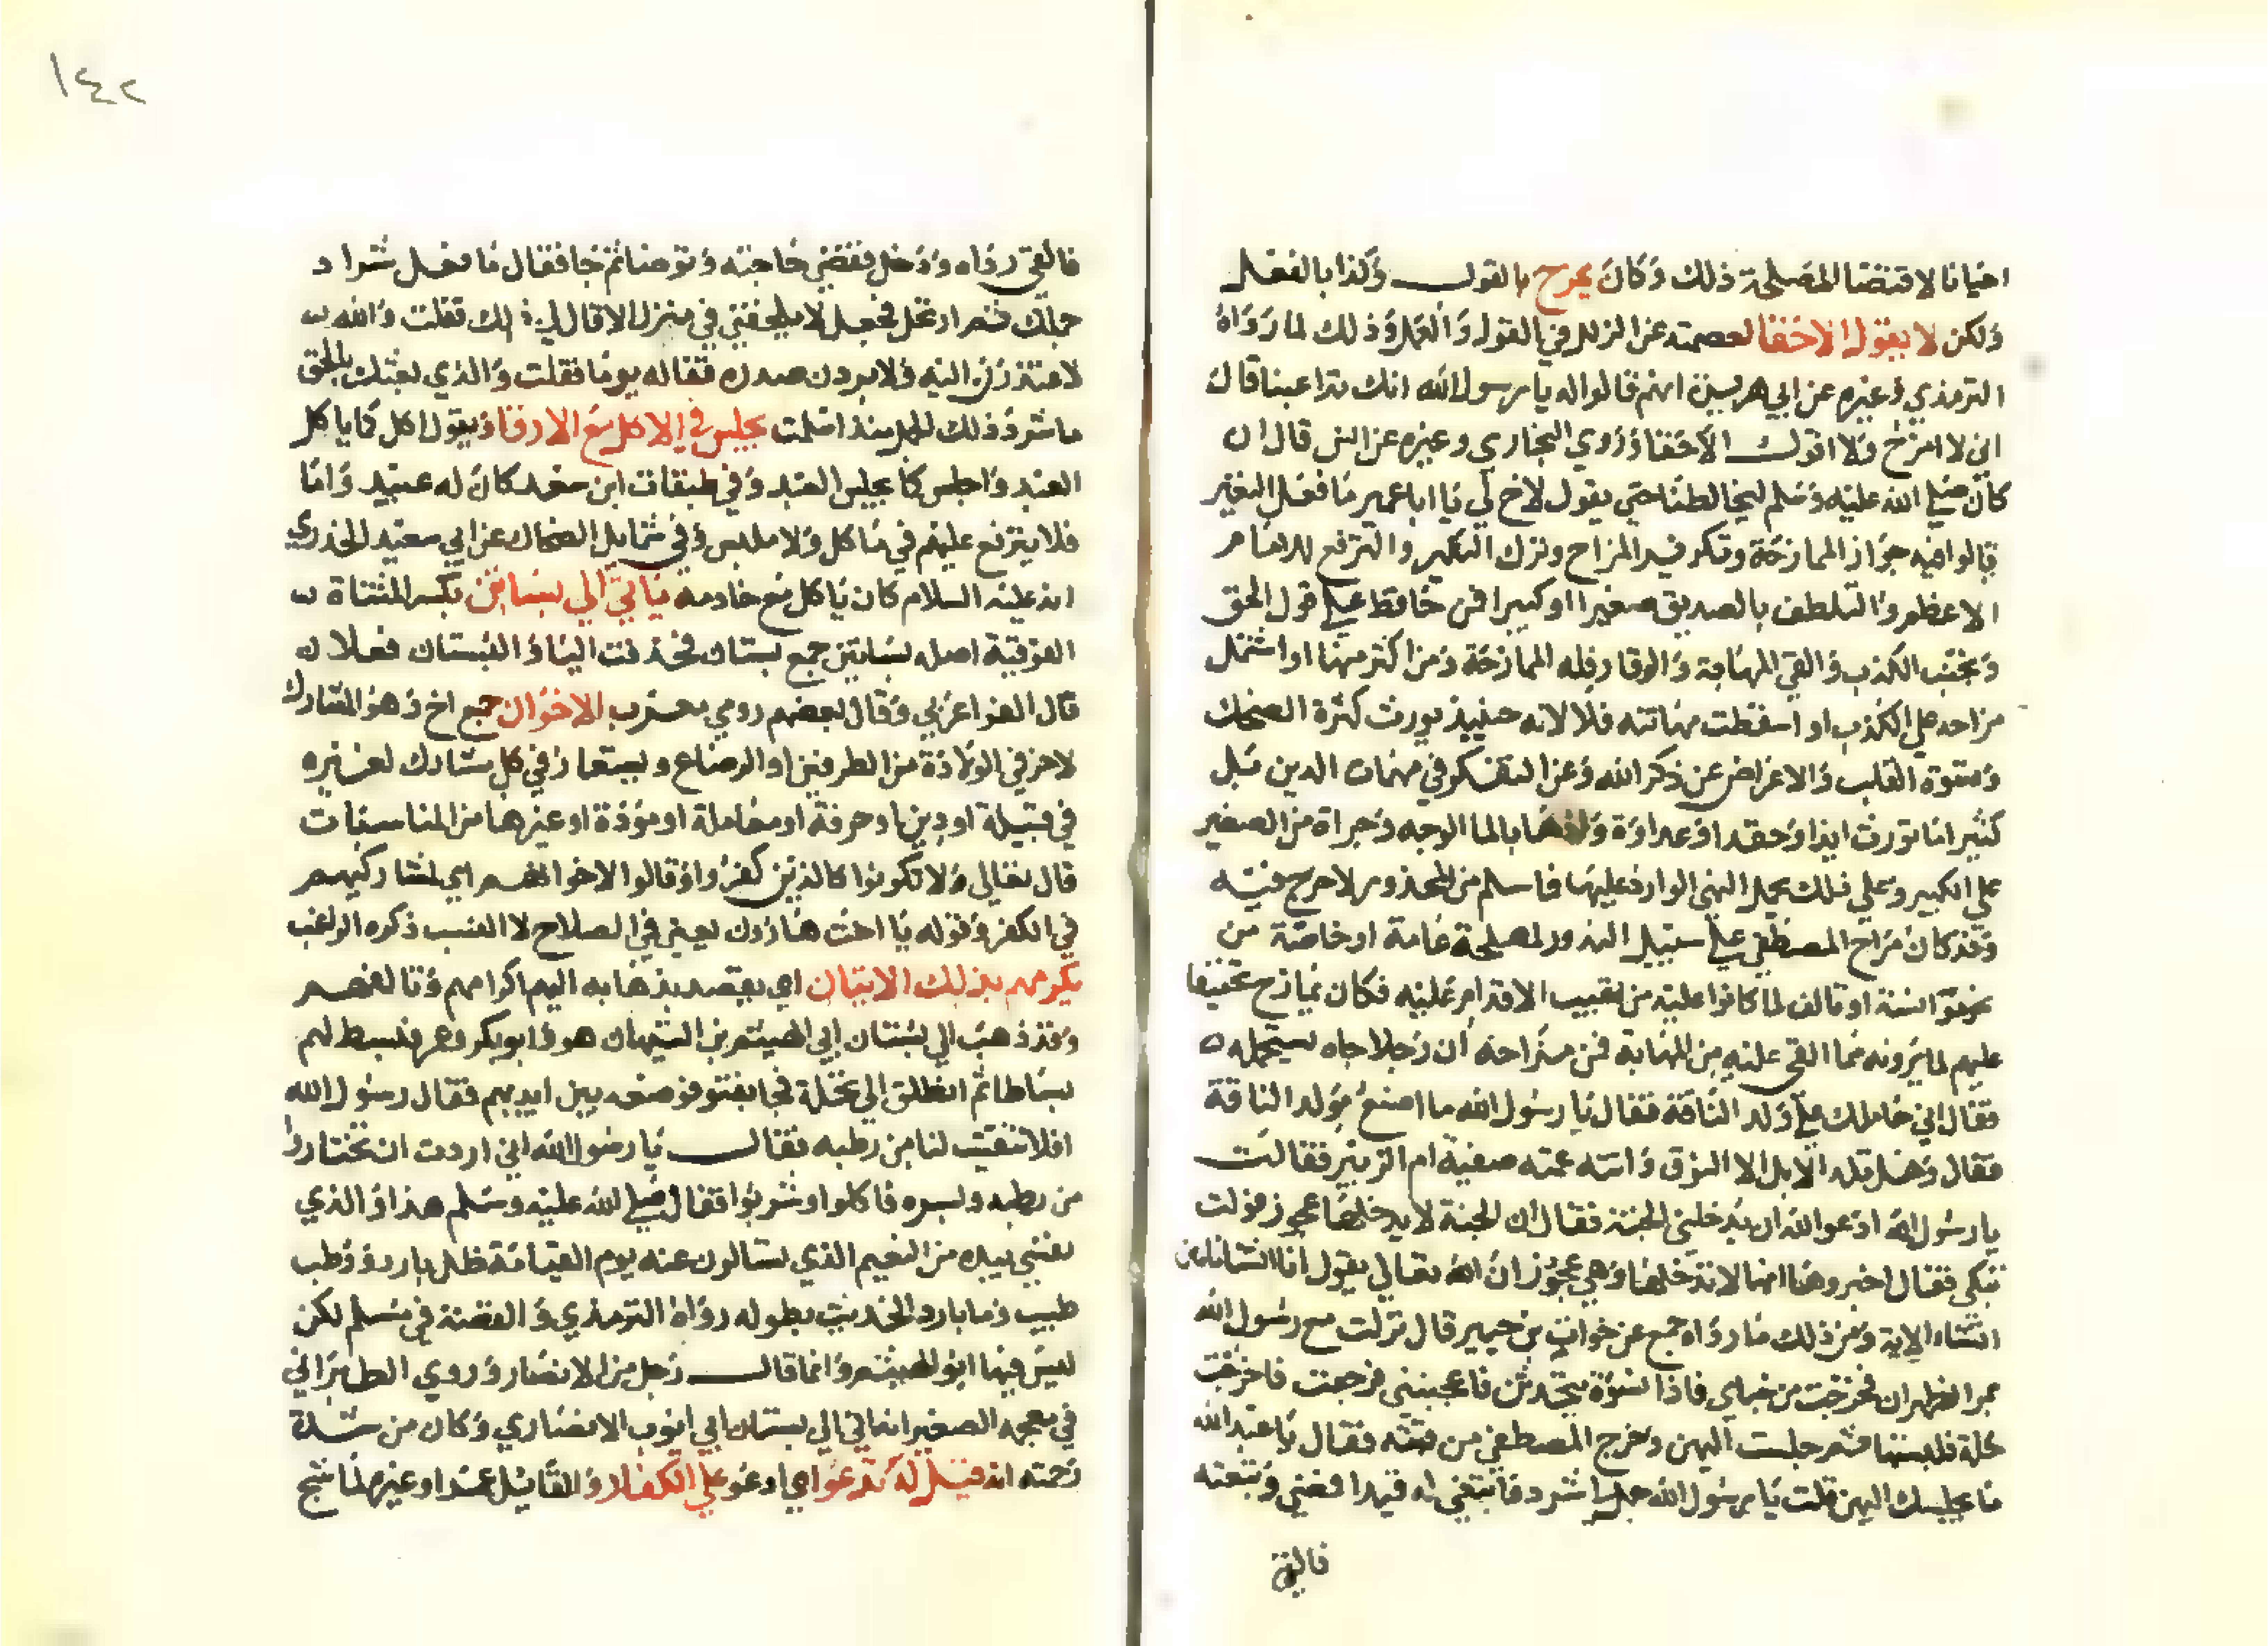 احيانا لاقتضا المصلحة ذلك وكان يمزح بالقول وكذا بالفعل
ولكن لا يقول الا حقا لعصمته عن الزلل في القول والعمل وذلك لما رواه
الترمذي وغيره عن ابي هريرة انهم قالوا له يا رسول الله انك تداعبنا قال
اني لا امزح ولا اقول الا حقا وروي البخاري وغيره عن انس قال ان
كان صلي الله عليه وسلم ليخالطنا حتي يقول لاخ لي يا ابا عمير ما فعل النغير
قالوا فيه جواز الممازحة وتكرير المزاح وترك التكبر والترفع للامام
الاعظم والتلطف بالصديق صغيرا او كبيرا فمن حافظ علي قول الحق
وتجنب الكذب والقي المهابة والوقار فله الممازحة ومن اكثر منها او اشتمل
مزاحه علي الكذب او اسقطت مهابته فلا لانه حينيذ يورث كثرة الضحك
وقسوة القلب والاعراض عن ذكر الله وعن التفكر في مهمات الدين بل
كثيرا ما تورث ايذا وحقدا وعداوة بالما الوجه وجراة من الصغير
علي الكبير وعلي ذلك يحمل النهي الوارد عليها فا سلم من المحذور لا حرج فيه
وقد كان مزاح المصطفي علي سبيل الندور لمصلحة عامة او خاصة من
نحو مؤانسة او تالف لما كانوا عليه من تهيب الاقدام عليه فكان يمازح تخفيفا
عليهم لما يرونه مما القي عليه من المهابة فمن مزاحه أن رجلا جاه يستحمله
فقال اني حاملك علي ولد الناقة فقال يا رسول الله ما اصنع بولد الناقة
فقال وهل تلد الابل الا النوق واتته عمته صفية ام الزبير فقالت
يا رسول الله ادعو الله ان يدخلني الجنة فقال ان الجنة لا يدخلها عجوز فولت
تبكي فقال اخبروها انها لا تدخلها وهي عجوز ان الله تعالي يقول انا انشاناهن
انشاء الاية ومن ذلك ما رواه جمع عن خوات بن جبير قال نزلت مع رسول الله
بمر الظهران فخرجت من خباي فاذا نسوة يتحدثن فاعجبنني فرجعت فاخرجت
حلة فلبستها ثم جلست اليهن وخرج المصطفي من قبته فقال يا عبد الله
ما يجلسك اليهن قلت يا رسول الله جمل شرد فابتغي له قيدا فمضي وتبعته
فالقي
١٤٢
فالقي رداه ودخل فقضي حاجته وتوضا ثم جا فقال ما فعل شراد
جملك ثم ارتحل فجعل لا يلحقني في منزل الا قال لي ذلك فقلت والله
لاعتذرن اليه ولابردن صدره فقاله يوما فقلت والذي بعثك بالحق
ما شرد ذلك الجمل منذ اسلمت يجلس في الاكل مع الارقا ويقول اكل كما ياكل
العبد واجلس كما يجلس العبد وفي طبقات ابن سعد كان له عبيد واما
فلا يترفع عليهم في ماكل ولا ملبس وفي شمايل الضحاك عن ابي سعيد الخدري
انه عليه السلام كان ياكل مع خادمه ياتي الي بساتين بكسر المثناة
الفوقية اصله بساتين جمع بستان فحذفت اليا والبستان فعلان
قال الفراعربي وقال بعضهم رومي معرب الاخوان جمع اخ وهو المشارك
لاخر في الولادة من الطرفين او الرضاع ويستعار في كل مشارك لغيره
في قبيلة او دين او حرفة او معاملة او مودة او غيرها من المناسبات
قال تعالي ولا تكونوا كالذين كفروا وقالوا لاخوانهم اي لمشاركيهم
في الكفر وقوله يا اخت هارون يعني في الصلاح لا النسب ذكره الراغب
يكرمهم بذلك الاتيان اي يقصد بذهابه اليهم اكرامهم وتالفهم
وقد ذهب الي بستان ابي الهيثم بن التيهان هو وابو بكر وعمر فبسط لهم
بساطا ثم انطلق الي نخلة فجا بقنو فوضعه بين ايديهم فقال رسول الله
افلا تنقيت لنا من رطبه فقال يا رسول الله اني اردت ان تختاروا
من رطبه وبسره فاكلوا وشربوا فقال صلي الله عليه وسلم هذا والذي
نفسي بيده من النعيم الذي تسالون عنه يوم القيامة ظل بارد ورطب
طيب وما بارد الحديث بطوله رواه الترمذي والقصة في مسلم لكن
ليس فيها ابو الهيثم وانما قال رجل من الانصار وروي الطبراني
في معجمه الصغير انه اتي الي بستان ابي ايوب الانصاري وكان من شدة
رحمته انه قيل له تدعوا اي ادعو علي الكفار والقايل عمر او غيره لما شج